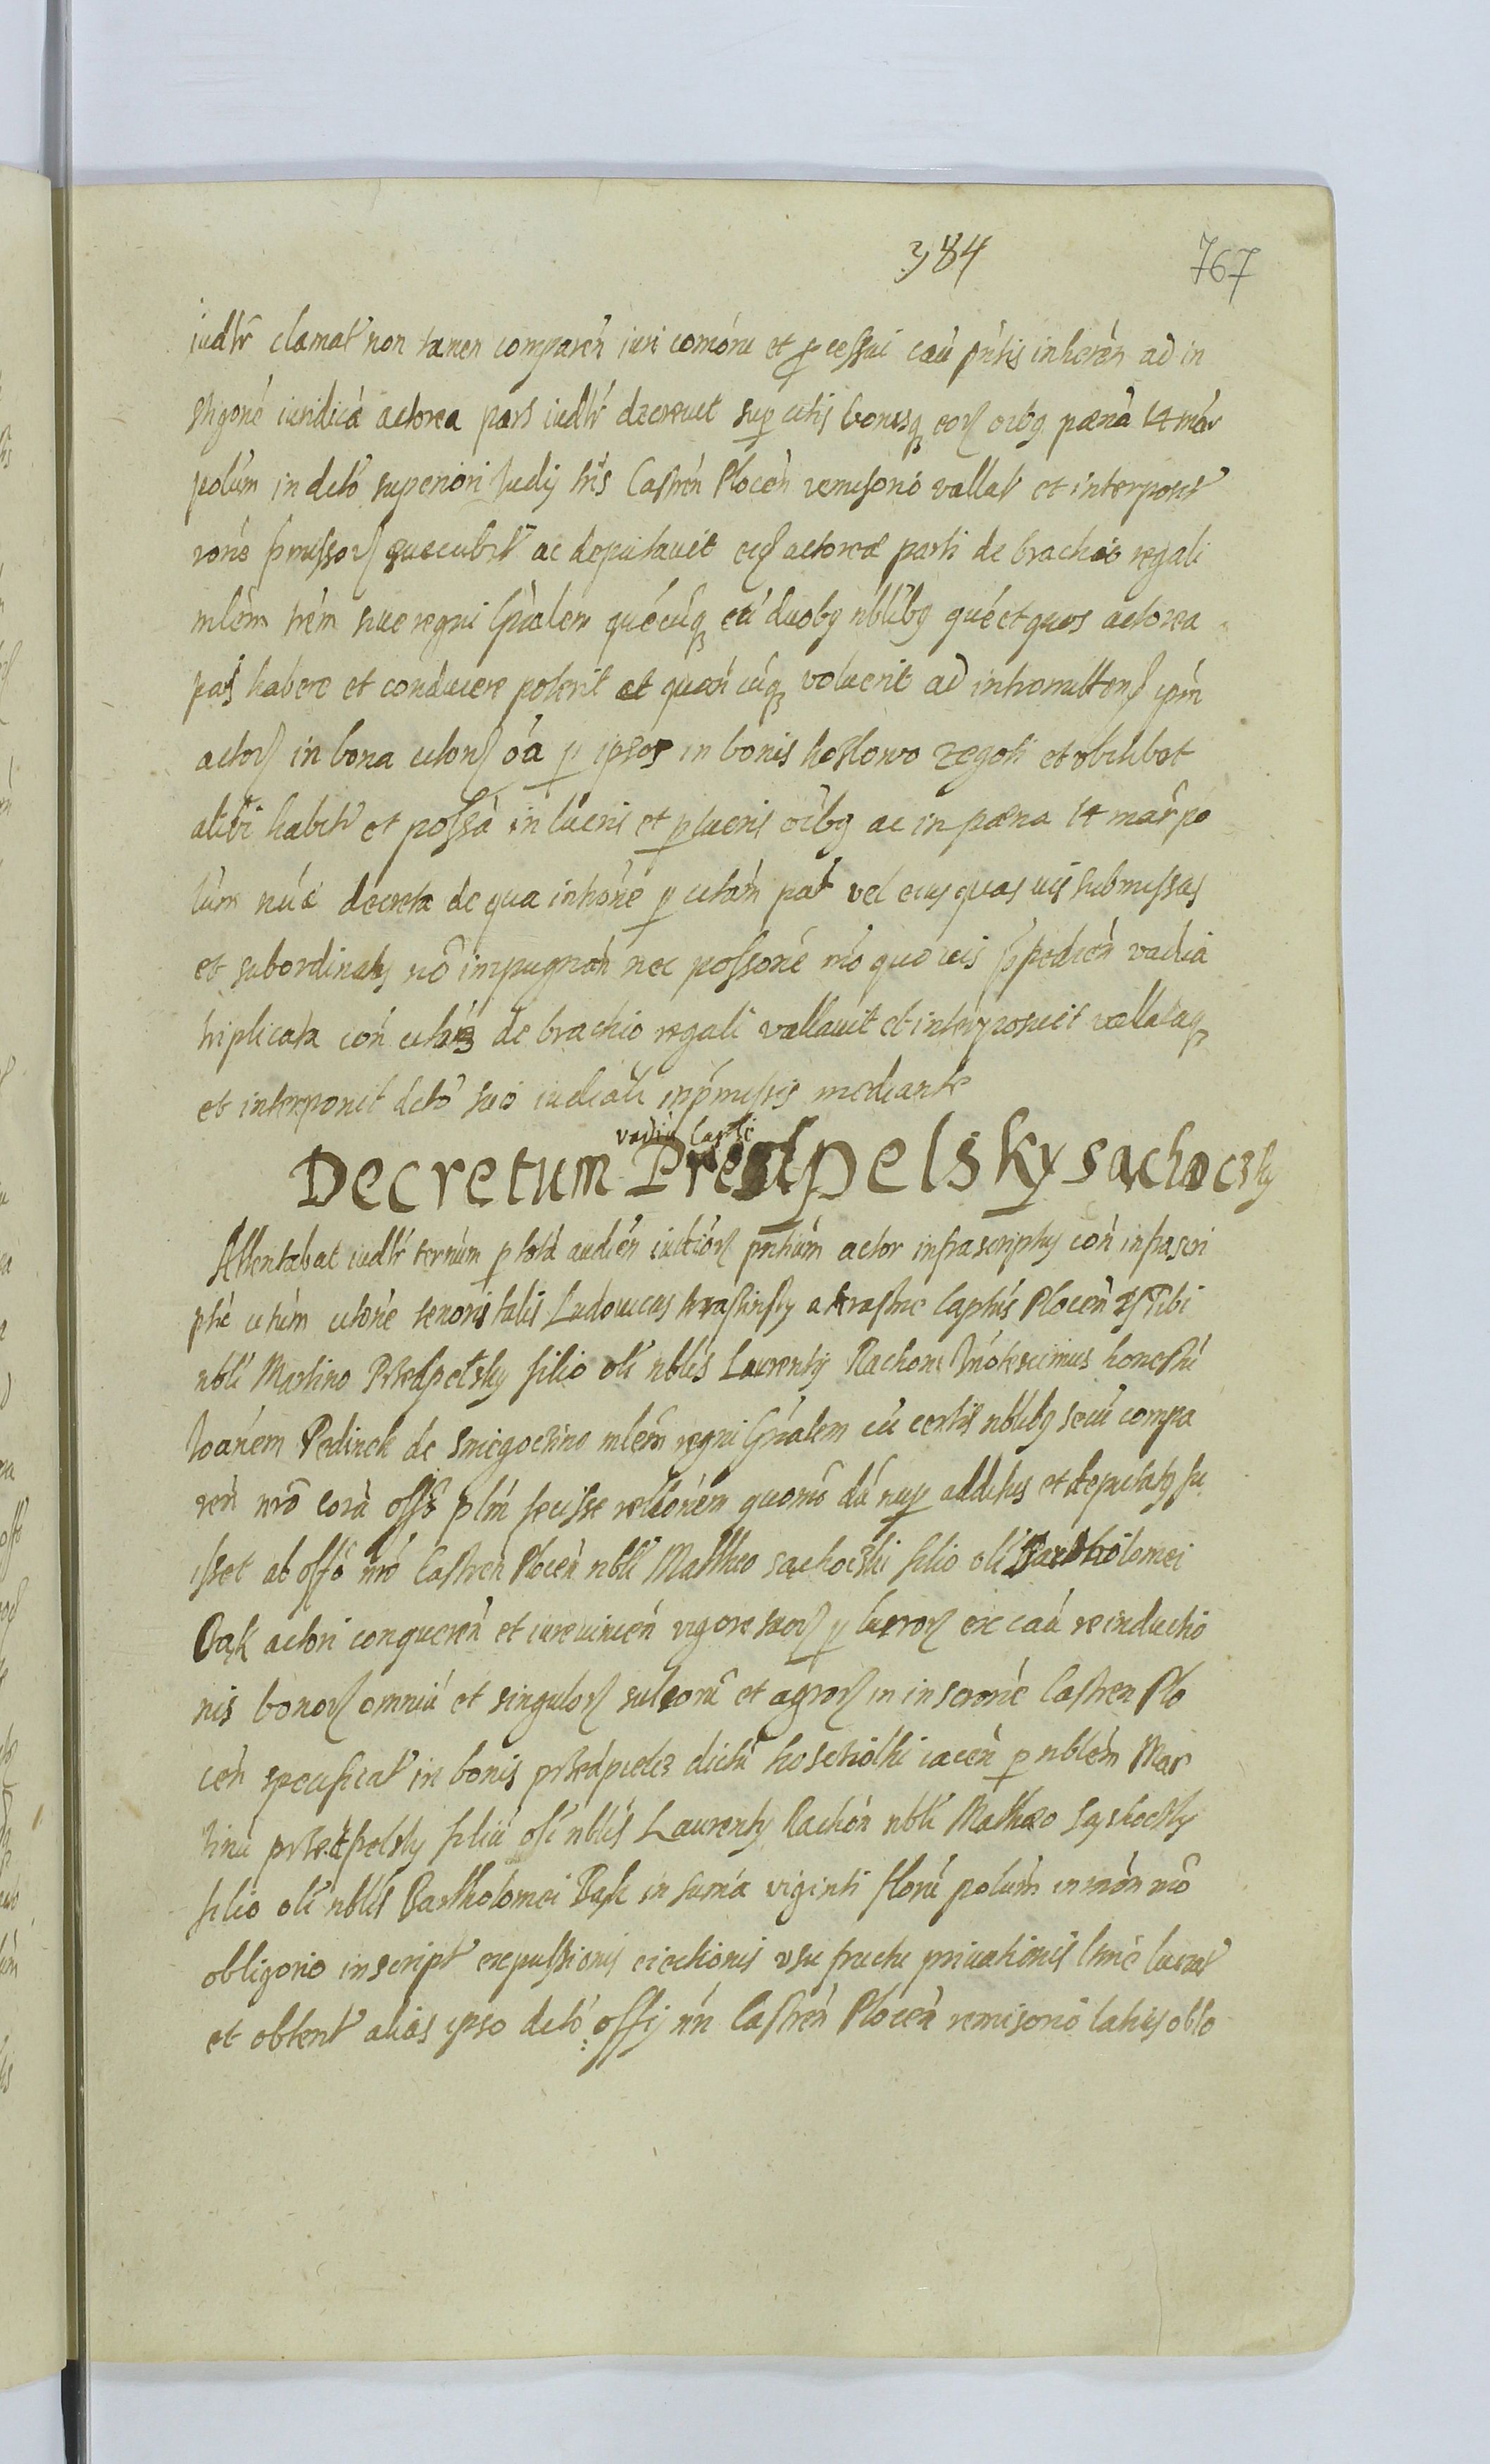 384
767
iudltr clamat non tamen comparen iuri comõni et processui cau pntis inheren ad in
stigone iuridica actorea pars iudltr decrevit sup citis bonisq eor oibg pæna 14 mar
polum in dcto superiori Judy tris Castren Plocen remisorio vallat et interposit
rone pmissor quecubit ac deputavit eid actoreæ parti de brachio regali
mlem trem sive regni Gnalem quecuq cu duobg nblibg que et quos actorea
pars habere et conducere poterit et quan cuq voluerit ad intromittend ipm
actor in bona citor oa p ipsos in bonis kozlowo zegoti et vbilibet
alibi habit et possa in lucris et plucris oibg ac in pæna 14 mar po
lum nuc decreta de qua introne p citam part vel eius quas vis submissas
et subordinatas no impugnan nec possone mo quo vis ppedien vadia
triplicata con citis de brachio regali vallavit et interposuit vallataq
et interponit dcto suo iudiciali in pmissis mediante
vadiu Castri
Decretum Predpelsky sachoczky
Attentabat iudltr ternum p tota audien iudicior pntium actor infrascriptus con infrascri
ptu citum citone tenoris talis Ludovicus krasinsky a krasne Capitis Plocen Tibi
nbli Martino Przedpelsky filio oli nblis Laurenty Rachon Inotescimus honestu
Joanem Pedinek de Smegoczino mlem regni Gnalem cu certis nblibg secu compa
ren nro cora offo plm fecisse relonem quomo du nup additus et deputatus fu
isset ab offo nro Castren Plocen nbli Mattheo sachoczki filio oli Bartholomei
Bąk actori conqueren et iurevincen vigore suor plucror ex cau reinductio
nis bonor omniu et singulor sulcoru et agror in inscrone Castren Plo
cen specificat in bonis przedpelcz dictu kosciolki iacen p nblem Mar
tinu przedpelsky filiu oli nblis Laurenty Rachon nbli Matheo Sachoczky
filio oli nblis Bartholomei Bąk in suma viginti floru polum in mon mo
obligorio inscript expulsionis eiectionis usu fructu privationis ltme lucrat
et obtent alias ipso dcto offy nri Castren Plocen remisorio latius obło